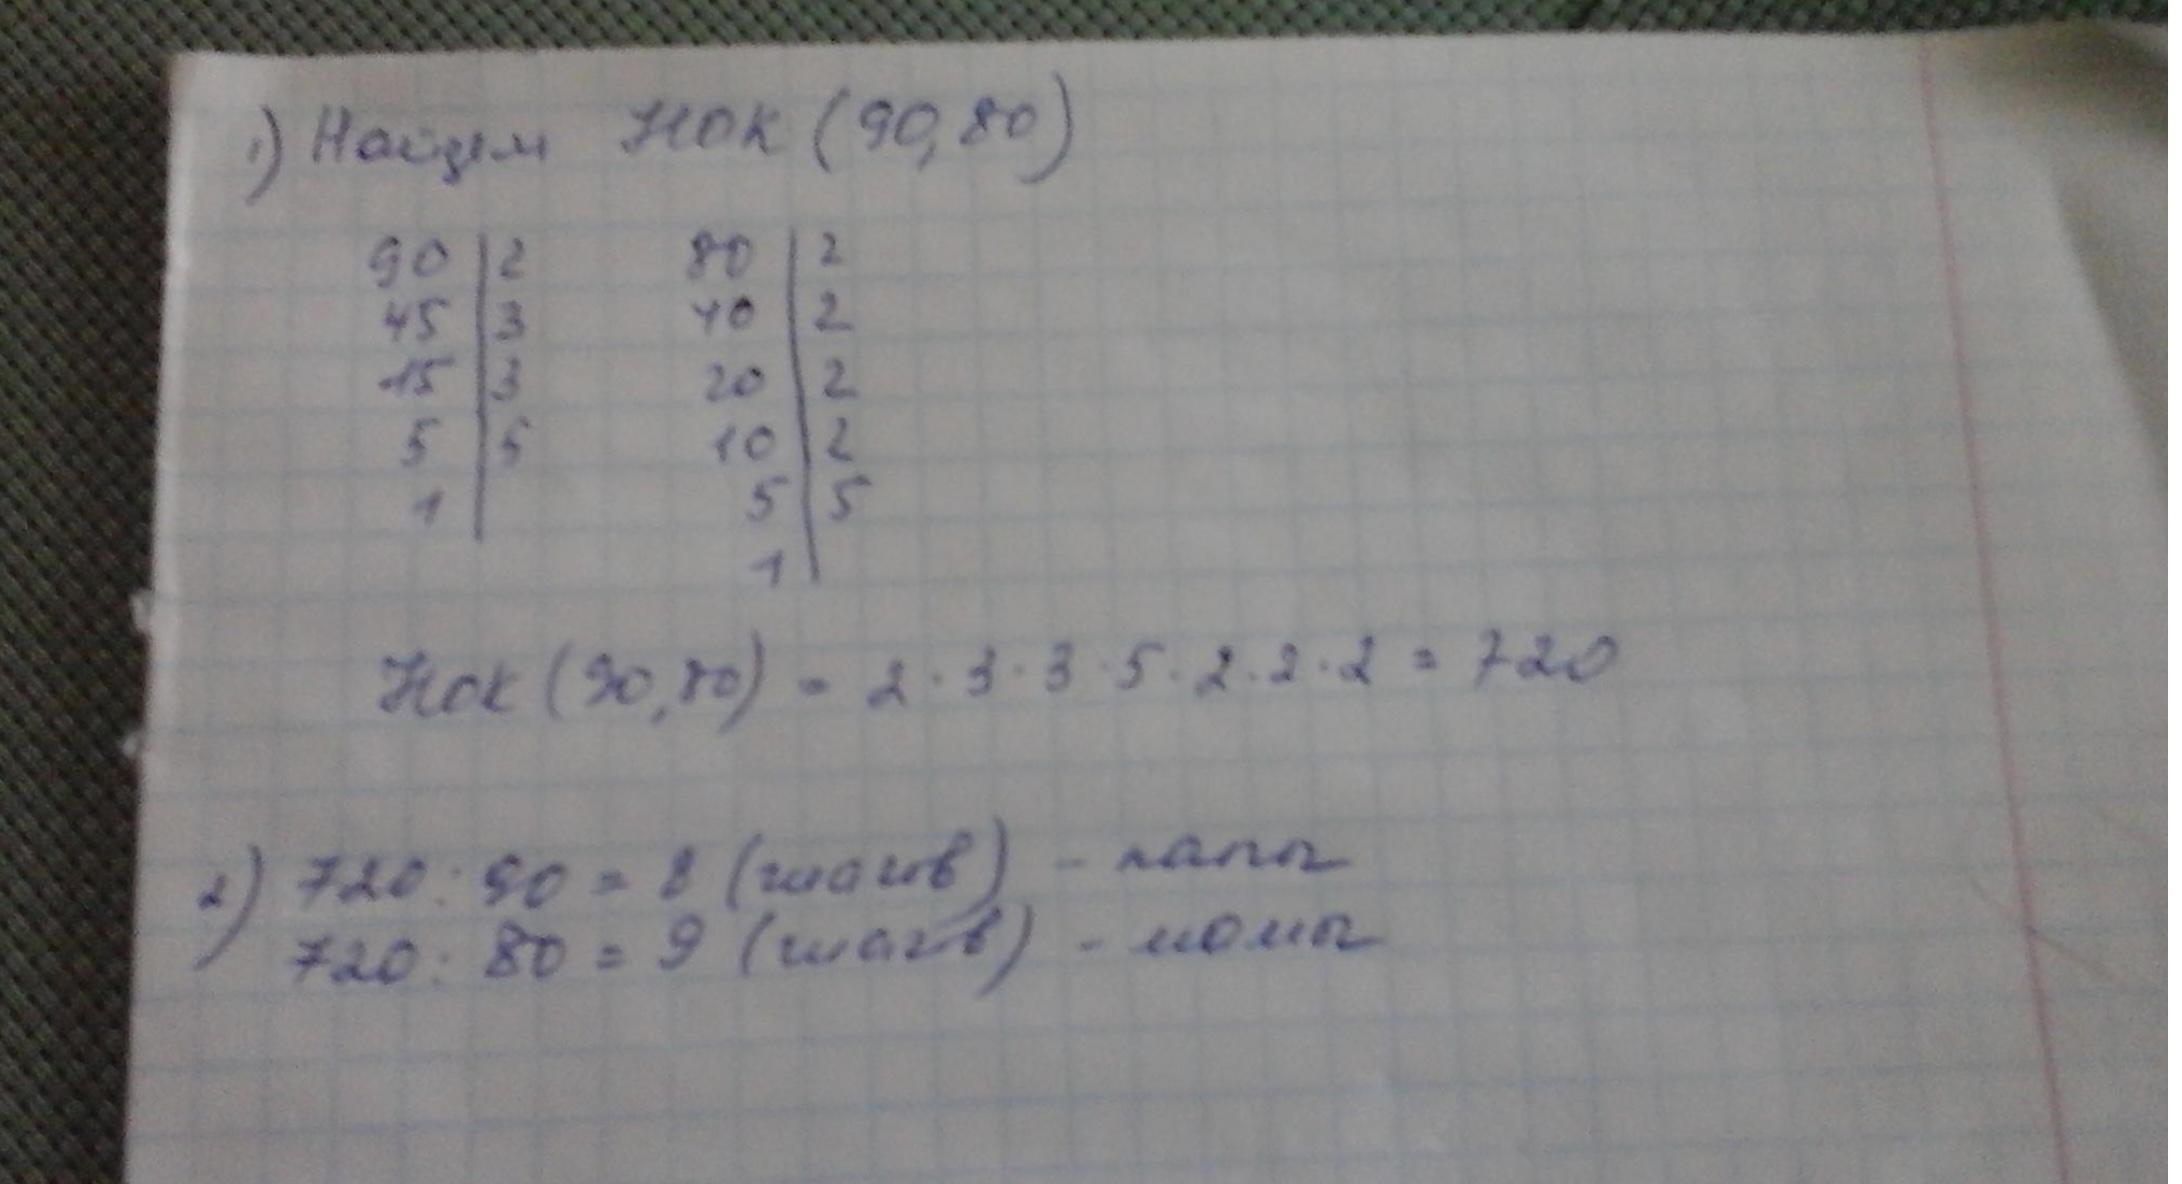 1) Найдем НОК (90, 80)
90 | 2 80 | 2
45 | 3 40 | 2
15 | 3 20 | 2
5 | 5 10 | 2
1 | 5 | 5
1 |
НОК (90, 80) = 2 · 3 · 3 · 5 · 2 · 2 · 2 = 720
2) 720 : 90 = 8 (шагов) - папы
720 : 80 = 9 (шагов) - мамы